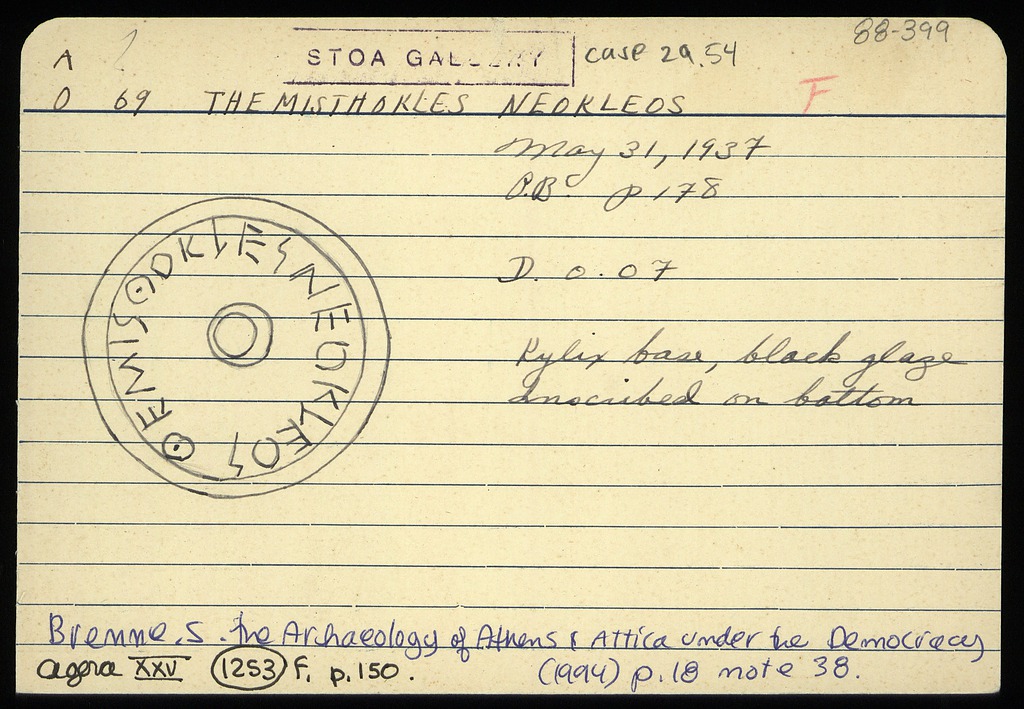 88-399
STOA GALLERY case 29.54
A
O 69 THEMISTHOKLES NEOKLEOS F
May 31, 1937
P.Bᶜ p 178
D. 0.07
Kylix base, black glaze
inscribed on bottom
ΘEMISΘOKLESNEOKLEOS
Brenne, S. The Archaeology of Athens & Attica under the Democracy
(1994) p.18 note 38.
agora XXV 1253 F. p.150.